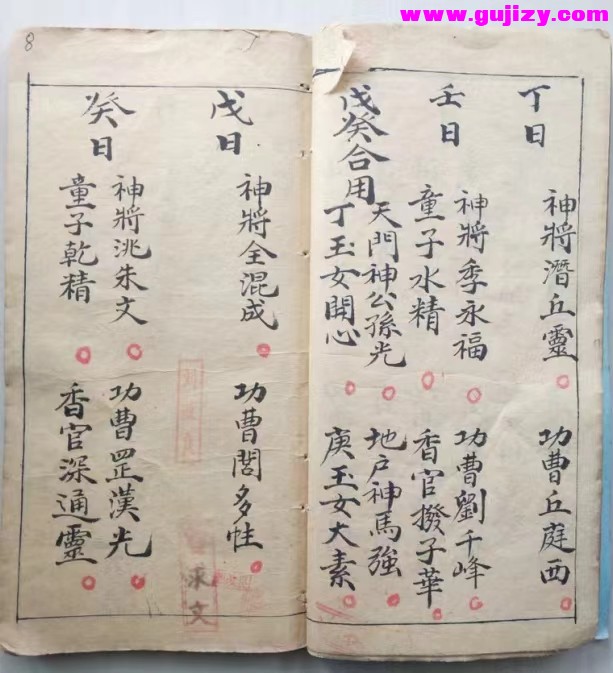 www.gujizy.com
丁日
神將潛丘靈 功曹丘庭西
壬日
神將季永福 功曹劉千峰
童子水精 香官撥子華
戊癸合用
天門神公孫光 地户神馬強
丁玉女開心 庚玉女大素
8
戊日
神將全混成 功曹閻多性
癸日
神將洮朱文 功曹罡漢光
童子乾精 香官深通靈
承文